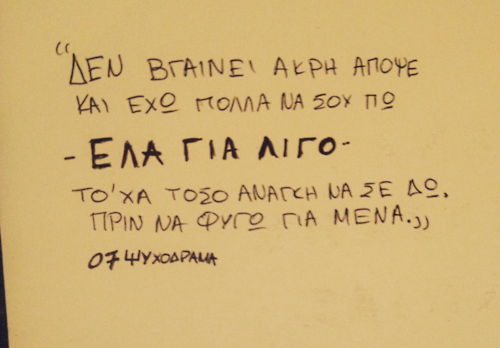 “ΔΕΝ ΒΓΑΙΝΕΙ ΑΚΡΗ ΑΠΟΨΕ
ΚΑΙ ΕΧΩ ΠΟΛΛΑ ΝΑ ΣΟΥ ΠΩ
- ΕΛΑ ΓΙΑ ΛΙΓΟ -
ΤΟ'ΧΑ ΤΟΣΟ ΑΝΑΓΚΗ ΝΑ ΣΕ ΔΩ.
ΠΡΙΝ ΝΑ ΦΥΓΩ ΓΙΑ ΜΕΝΑ.„
07 ΨΥΧΟΔΡΑΜΑ